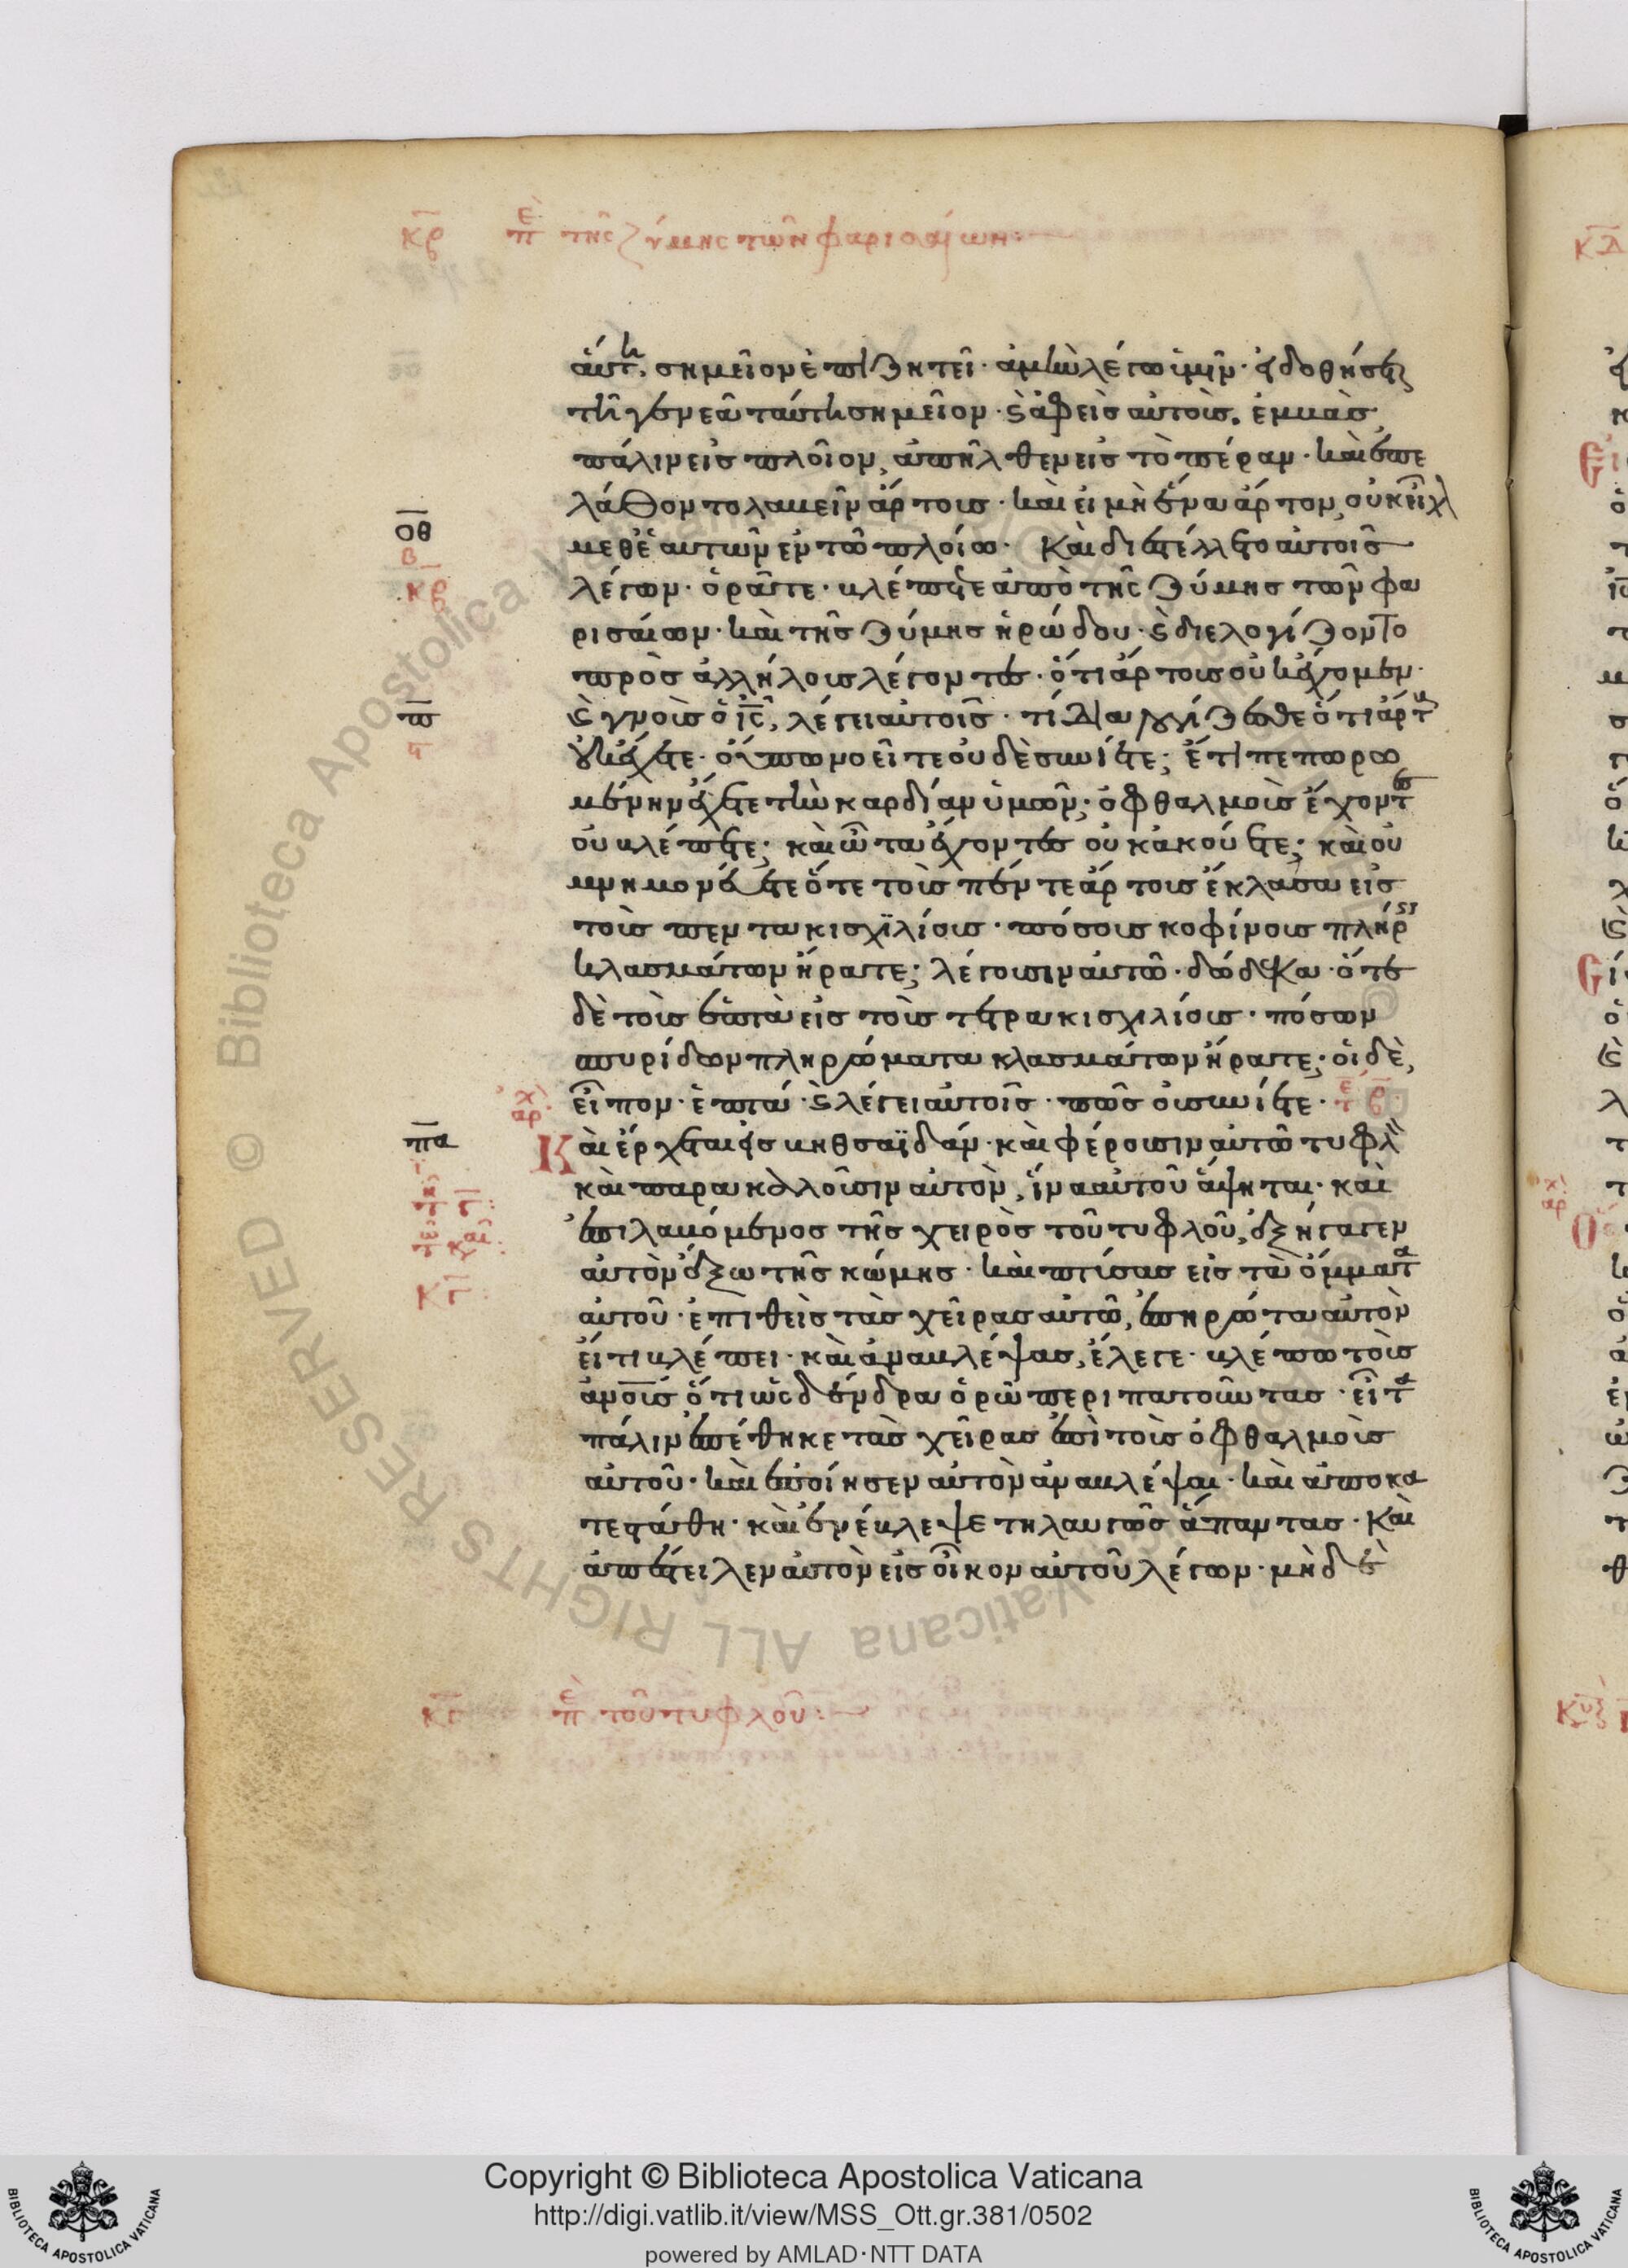 κβ περὶ τῆς ζύμης τῶν φαρισαίων:
αὕτη, σημεῖον ἐπιζητεῖ· ἀμὴν λέγω ὑμῖν· εἰ δοθήσεται
τῇ γενεᾷ ταύτῃ σημεῖον· καὶ ἀφεὶς αὐτοὺς, ἐμβὰς
πάλιν εἰς πλοῖον, ἀπῆλθεν εἰς τὸ πέραν· καὶ ἐπε
λάθοντο λαβεῖν ἄρτους· καὶ εἰ μὴ ἕνα ἄρτον, οὐκ εἶχον
οθ
β
μεθ' ἑαυτῶν ἐν τῷ πλοίῳ· Καὶ διεστέλλετο αὐτοῖς
κβ
λέγων· ὁρᾶτε· βλέπετε ἀπὸ τῆς ζύμης τῶν φα
ρισαίων· καὶ τῆς ζύμης ἡρώδου· καὶ διελογίζοντο
πρὸς ἀλλήλους λέγοντες· ὅτι ἄρτους οὐκ ἔχομεν·
π
καὶ γνοὺς ὁ ις, λέγει αὐτοῖς· τί διαλογίζεσθε ὅτι ἄρτους
οὐκ ἔχετε· οὔπω νοεῖτε οὐδὲ συνίετε; ἔτι πεπωρω
μένην ἔχετε τὴν καρδίαν ὑμῶν; ὀφθαλμοὺς ἔχοντες
οὐ βλέπετε; καὶ ὦτα ἔχοντες οὐκ ἀκούετε; καὶ οὐ
μνημονεύετε ὅτε τοὺς πέντε ἄρτους ἔκλασα εἰς
τοὺς πεντακισχϊλίους· πόσους κοφίνους πλήρεις
κλασμάτων ἤρατε; λέγουσιν αὐτῷ· δώδεκα· ὅτε
δὲ τοὺς ἑπτὰ εἰς τοὺς τετρακισχιλίους· πόσων
σπυρίδων πληρώματα κλασμάτων ἤρατε; οἱ δὲ,
εἶπον· ἑπτά· καὶ λέγει αὐτοῖς· πῶς οὐ συνίετε·
πα
Καὶ ἔρχεται εἰς βηθσαϊδάν· καὶ φέρουσιν αὐτῷ τυφλὸν
καὶ παρακαλοῦσιν αὐτὸν, ἵνα αὐτοῦ ἅψηται· καὶ
ἐπιλαβόμενος τῆς χειρὸς τοῦ τυφλοῦ, ἐξήγαγεν
αὐτὸν ἔξω τῆς κώμης· καὶ πτύσας εἰς τὰ ὄμματα
αὐτοῦ· ἐπιθεὶς τὰς χεῖρας αὐτῷ, ἐπηρώτα αὐτὸν
εἴ τι βλέπει· καὶ ἀναβλέψας, ἔλεγε· βλέπω τοὺς
ανους ὅτι ὡς δένδρα ὁρῶ περιπατοῦντας· εἶτα
πάλιν ἐπέθηκε τὰς χεῖρας ἐπὶ τοὺς ὀφθαλμοὺς
αὐτοῦ· καὶ ἐποίησεν αὐτὸν ἀναβλέψαι· καὶ ἀποκα
τεστάθη· καὶ ἐνέβλεψε τηλαυγῶς ἅπαντας· Καὶ
ἀπέστειλεν αὐτὸν εἰς οἶκον αὐτοῦ λέγων· μὴ δὲ
κγ περὶ τοῦ τυφλοῦ:
Copyright © Biblioteca Apostolica Vaticana
http://digi.vatlib.it/view/MSS_Ott.gr.381/0502
powered by AMLAD·NTT DATA
BIBLIOTECA APOSTOLICA VATICANA
BIBLIOTECA APOSTOLICA VATICANA
© Biblioteca Apostolica Vaticana ALL RIGHTS RESERVED